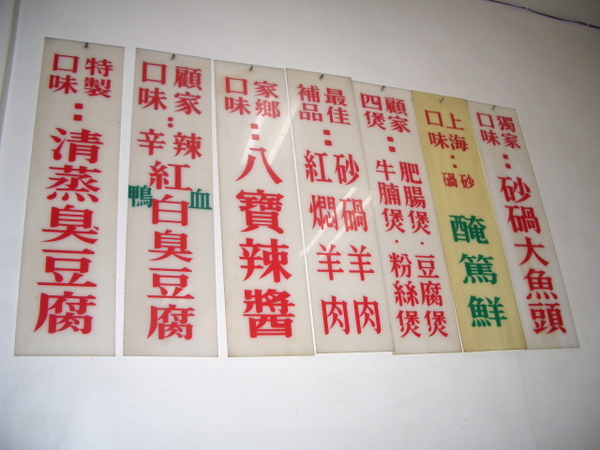 獨家口味：砂鍋大魚頭
上海口味：砂鍋醃篤鮮
顧家四煲：肥腸煲．豆腐煲．牛腩煲．粉絲煲
最佳補品：砂鍋羊肉紅燜羊肉
家鄉口味：八寶辣醬
顧家口味：辛辣紅白臭豆腐
鴨血
特製口味：清蒸臭豆腐